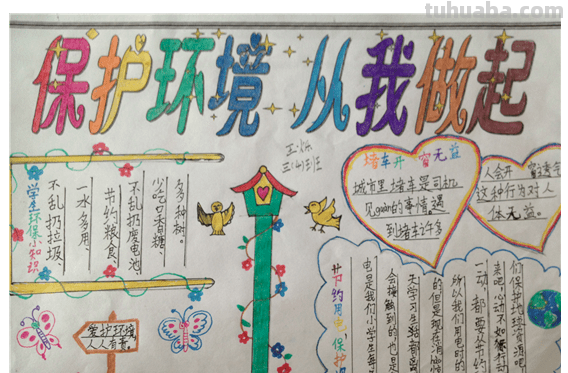 tuhuaba.com
保护环境 从我做起
三(4)班
学生环保小知识
不乱扔垃圾、
一水多用、
节约粮食、
不乱扔废电池、
少吃口香糖、
多种树。
爱护环境,
人人有责。
堵车开窗无益
城市里堵车是司机
见gaan的事情。遇
到堵车许多
人会开窗透
这种行为对人
体无益。
节约用电,保护
电是我们小学生每
会接触到的也是
天学习生活都
的但是现在消
所以我们用电时
一动,都要从节约
来吧,心动不如行动
们保护地球资源吧